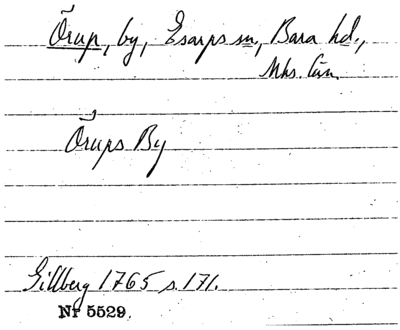 Örup, by, Esarps sn, Bara hd.,
Mhs. län
Örups By
Gillberg 1765 s. 171.
Nr 5529.